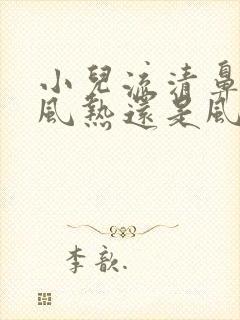 小兒流清鼻
風熱還是風
李歆.